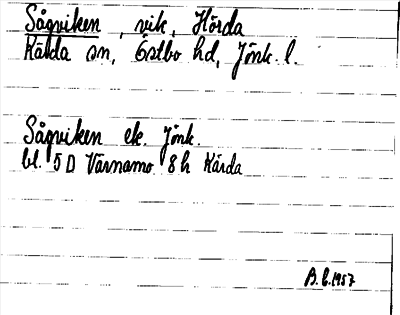 Sågviken, vik, Hörda
Kärda sn, Östbo hd, Jönk. l.
Sågviken ek. Jönk.
bl. 5D Värnamo 8h Kärda
B.L. 1957